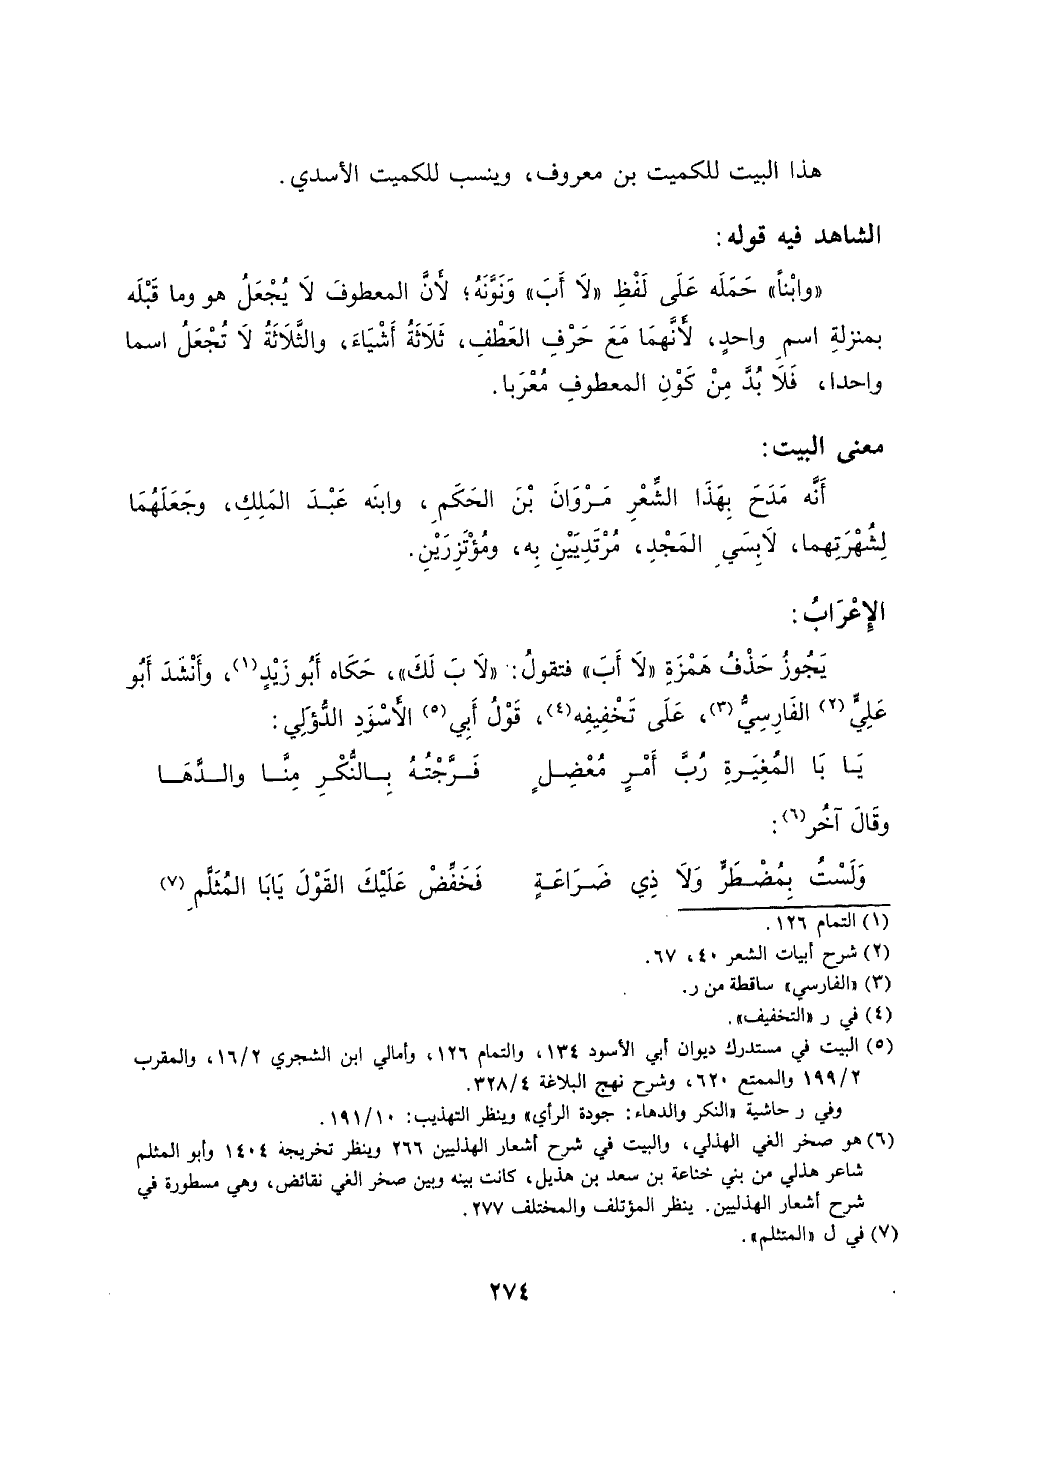 هذا البيت للكميت بن معروف، وينسب للكميت الأسدي.
الشاهد فيه قوله:
«وابْناً» حَمَلَه عَلَى لَفْظِ «لَا أَبَ» وَنَوَّنَهُ؛ لأَنَّ المعطوفَ لَا يُجْعَلُ هو وما قَبْلَه
بمنزلةِ اسمٍ واحدٍ، لأَنَّهمَا مَعَ حَرْفِ العَطْفِ، ثَلَاثَةُ أَشْيَاءَ، والثَّلَاثَةُ لَا تُجْعَلُ اسما
واحدا، فَلَا بُدَّ مِنْ كَوْنِ المعطوفِ مُعْرَبا.
معنى البيت:
أَنَّه مَدَحَ بِهَذَا الشِّعْرِ مَرْوَانَ بْنَ الحَكَمِ، وابنَه عَبْدَ المَلِكِ، وجَعَلَهُمَا
لِشُهْرَتِهما، لَابِسَيِ المَجْدِ، مُرْتَدِيَيْنِ بِه، ومُؤْتَزِرَيْنِ.
الإِعْرَابُ:
يَجُوزُ حَذْفُ هَمْزَةِ «لَا أَبَ» فتقولُ: «لَا بَ لَكَ»، حَكَاه أَبُو زَيْدٍ(١)، وأَنْشَدَ أَبُو
عَلِيٍّ(٢) الفَارِسِيُّ(٣)، عَلَى تَخْفِيفِه(٤)، قَوْلُ أَبِي(٥) الأَسْوَدِ الدُّؤَلِي:
يَا بَا المُغِيَرةِ رُبَّ أَمْرٍ مُعْضِلٍ فَرَّجْتُهُ بِالنُّكْرِ مِنَّا والدَّهَا
وقَالَ آخَر(٦):
وَلَسْتُ بِمُضْطَرٍّ وَلَا ذِي ضَرَاعَةٍ فَخَفِّضْ عَلَيْكَ القَوْلَ يَابَا المُثَلَّمِ (٧)
(١) التمام ١٢٦.
(٢) شرح أبيات الشعر ٤٠، ٦٧.
(٣) «الفارسي» ساقطة من ر.
(٤) في ر «التخفيف».
(٥) البيت في مستدرك ديوان أبي الأسود ١٣٤، والتمام ١٢٦، وأمالي ابن الشجري ١٦/٢، والمقرب
١٩٩/٢ والممتع ٦٢٠، وشرح نهج البلاغة ٣٢٨/٤.
وفي ر حاشية «النكر والدهاء: جودة الرأي» وينظر التهذيب: ١٩١/١٠.
(٦) هو صخر الغي الهذلي، والبيت في شرح أشعار الهذليين ٢٦٦ وينظر تخريجة ١٤٠٤ وأبو المثلم
شاعر هذلي من بني خناعة بن سعد بن هذيل، كانت بينه وبين صخر الغي نقائض، وهي مسطورة في
شرح أشعار الهذليين. ينظر المؤتلف والمختلف ٢٧٧.
(٧) في ل «المتثلم».
٢٧٤